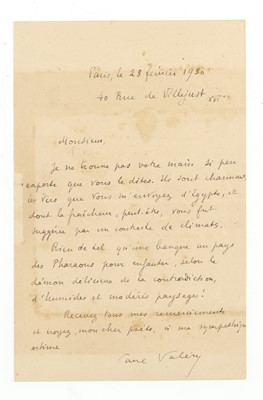 Paris, le 28 février 1930
40 Rue de Villejust XVIe
Monsieur,
Je ne trouve pas votre main si peu
experte que vous le dites. Ils sont charmants
les vers que vous m'envoyez d'Égypte, et
dont la fraîcheur, peut-être, vous fut
suggérée par un contraste de climats.
Rien de tel qu'une banque au pays
des Pharaons pour enfanter, selon le
démon délicieux de la contradiction,
d'humides et modérés paysages!
Recevez tous mes remerciements
et croyez, mon cher poète, à ma sympathique
estime
Paul Valéry